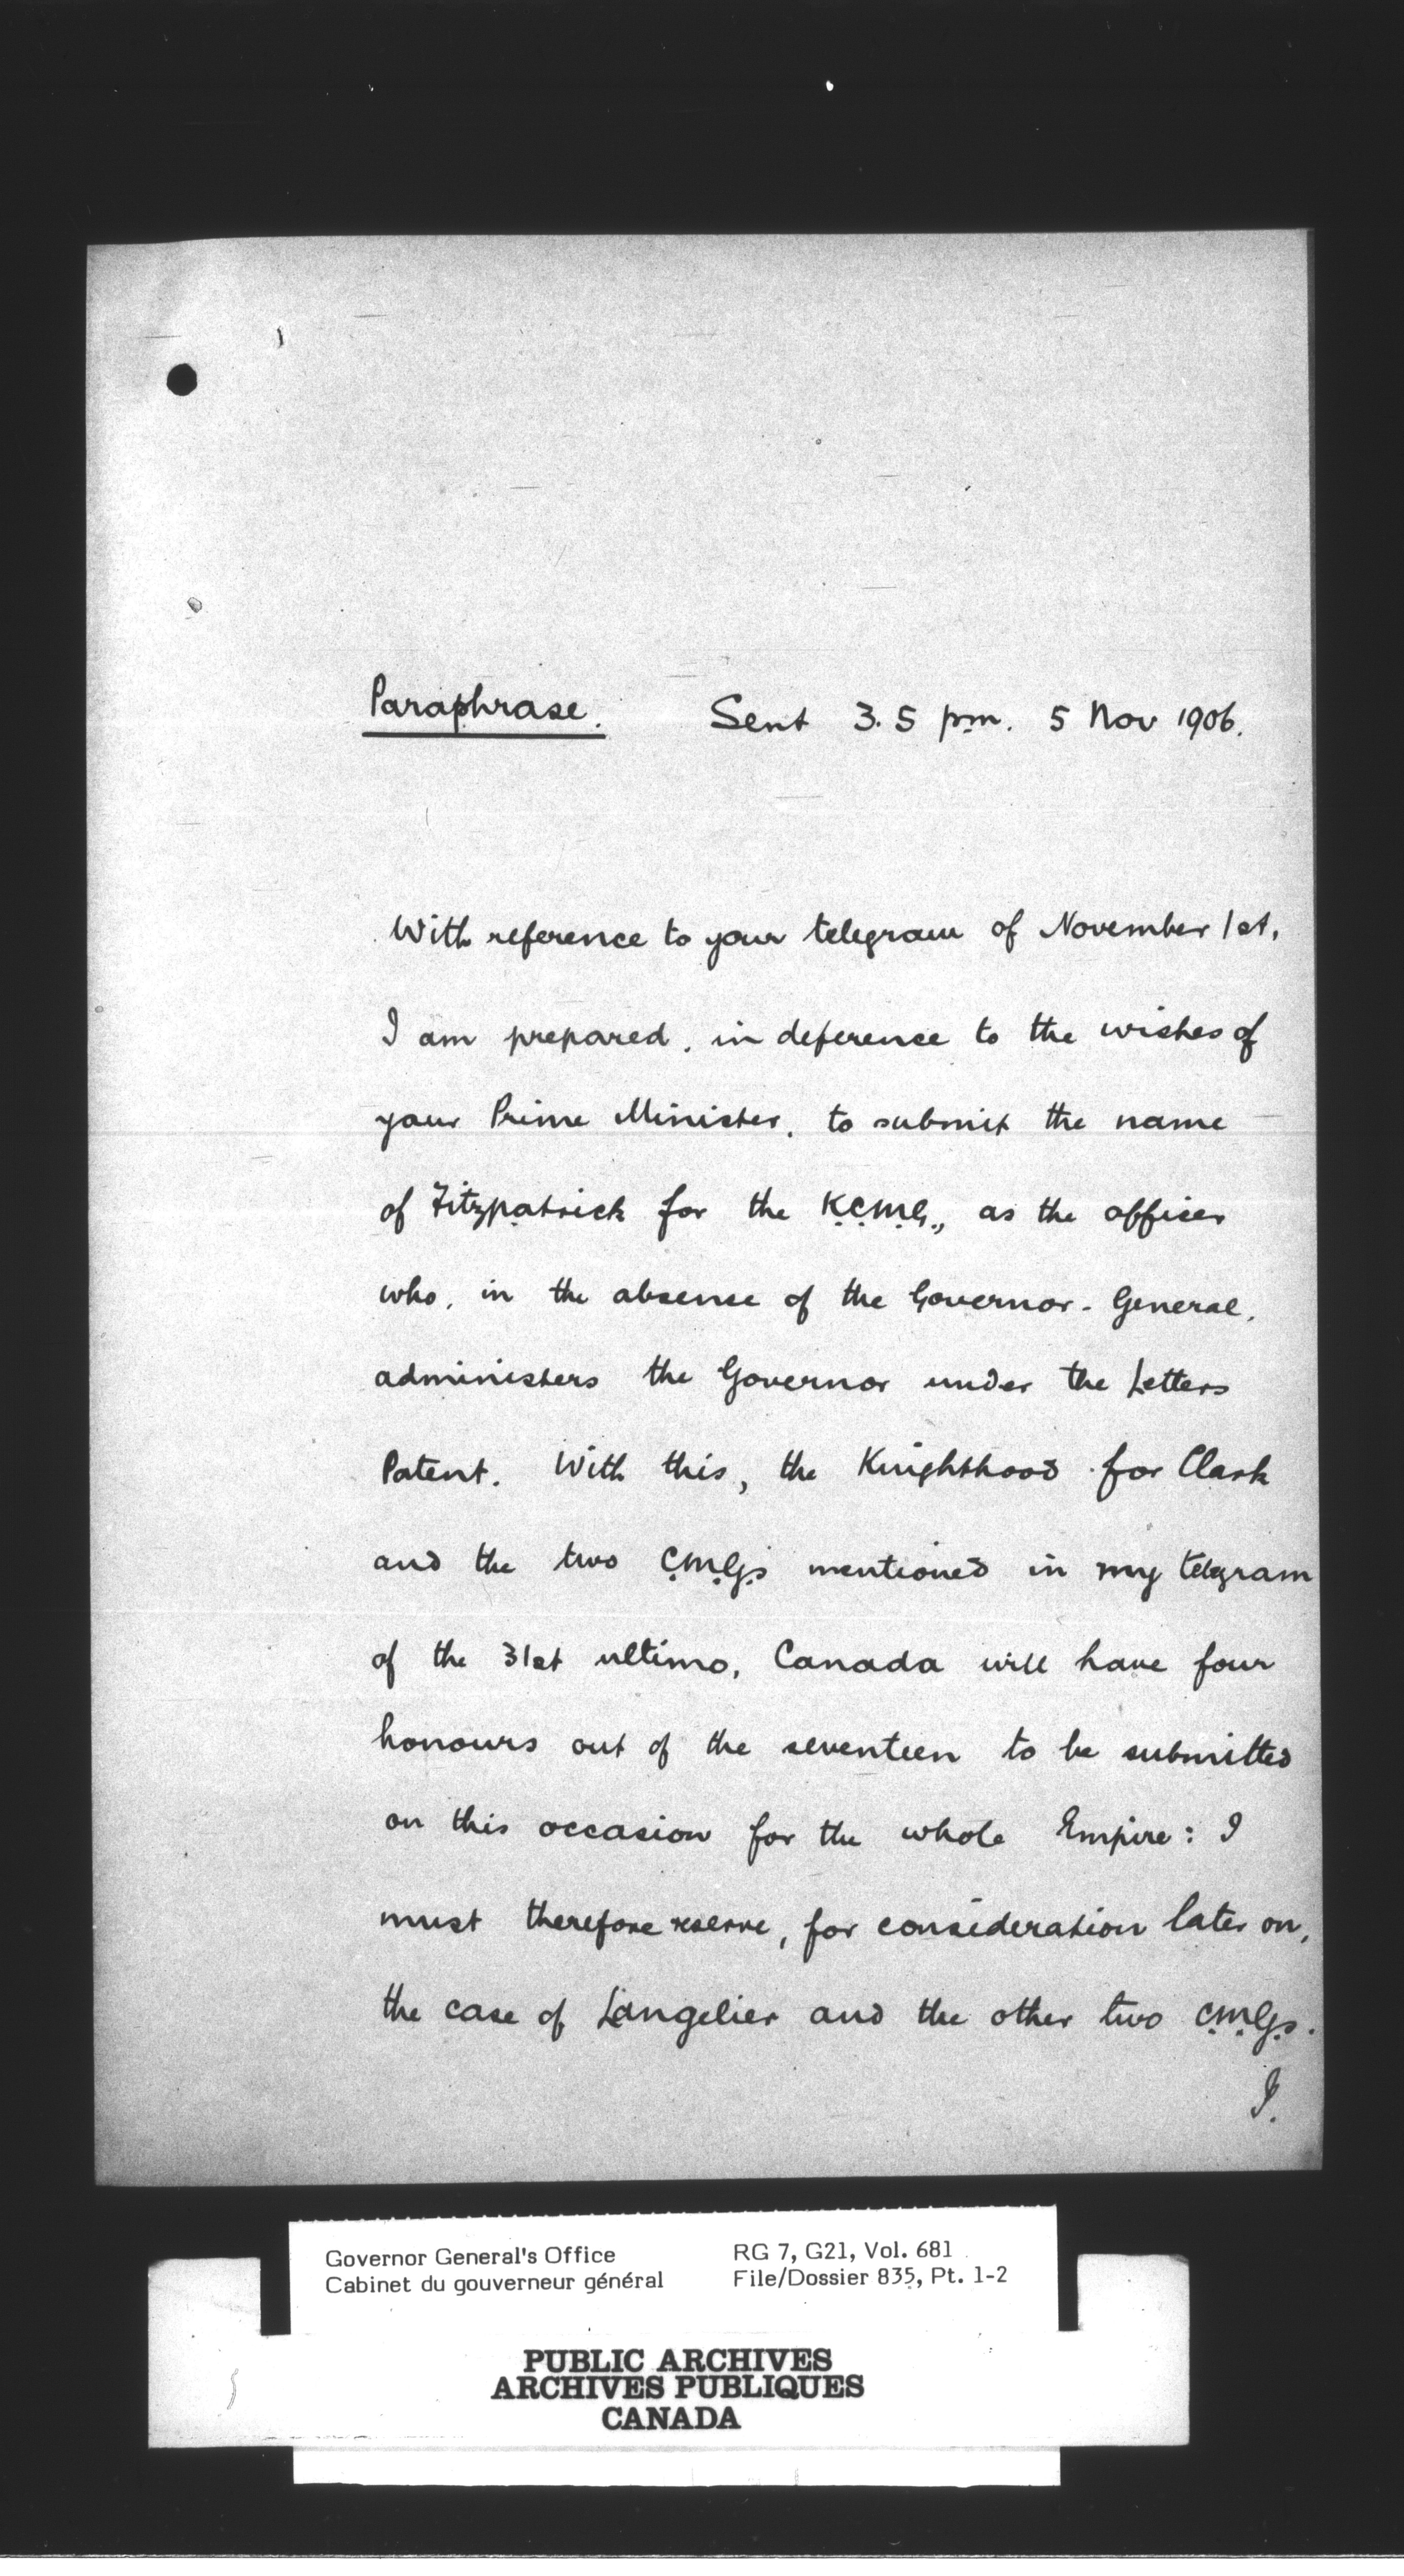 Paraphrase. Sent 3.5 pm. 5 Nov 1906.
With reference to your telegram of November 1st,
I am prepared, in deference to the wishes of
your Prime Minister, to submit the name
of Fitzpatrick for the K.C.M.G., as the officer
who, in the absence of the Governor-General,
administers the Governor under the Letters
Patent. With this, the Knighthood for Clark
and the two C.M.G.s mentioned in my telegram
of the 31st ultimo, Canada will have four
honours out of the seventeen to be submitted
on this occasion for the whole Empire: I
must therefore reserve, for consideration later on,
the case of Langelier and the other two C.M.G.s.
I.
Governor General's Office RG 7, G21, Vol. 681
Cabinet du gouverneur général File/Dossier 835, Pt. 1-2
PUBLIC ARCHIVES
ARCHIVES PUBLIQUES
CANADA